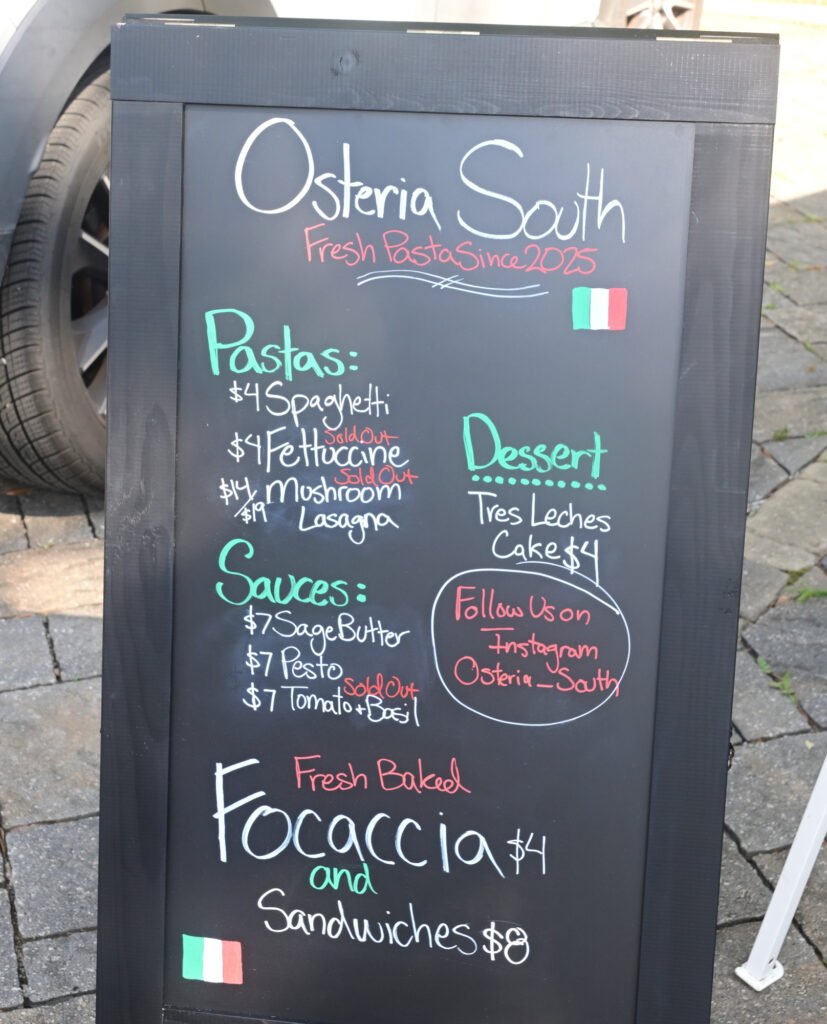 Osteria South
Fresh Pasta Since 2025
Pastas:
$4 Spaghetti
Sold Out
$4 Fettuccine
Sold Out
$14/$19 Mushroom
Lasagna
Sauces:
$7 Sage Butter
$7 Pesto
Sold Out
$7 Tomato + Basil
Dessert
Tres Leches
Cake $4
Follow Us on
Instagram
Osteria_South
Fresh Baked
Focaccia $4
and
Sandwiches $8